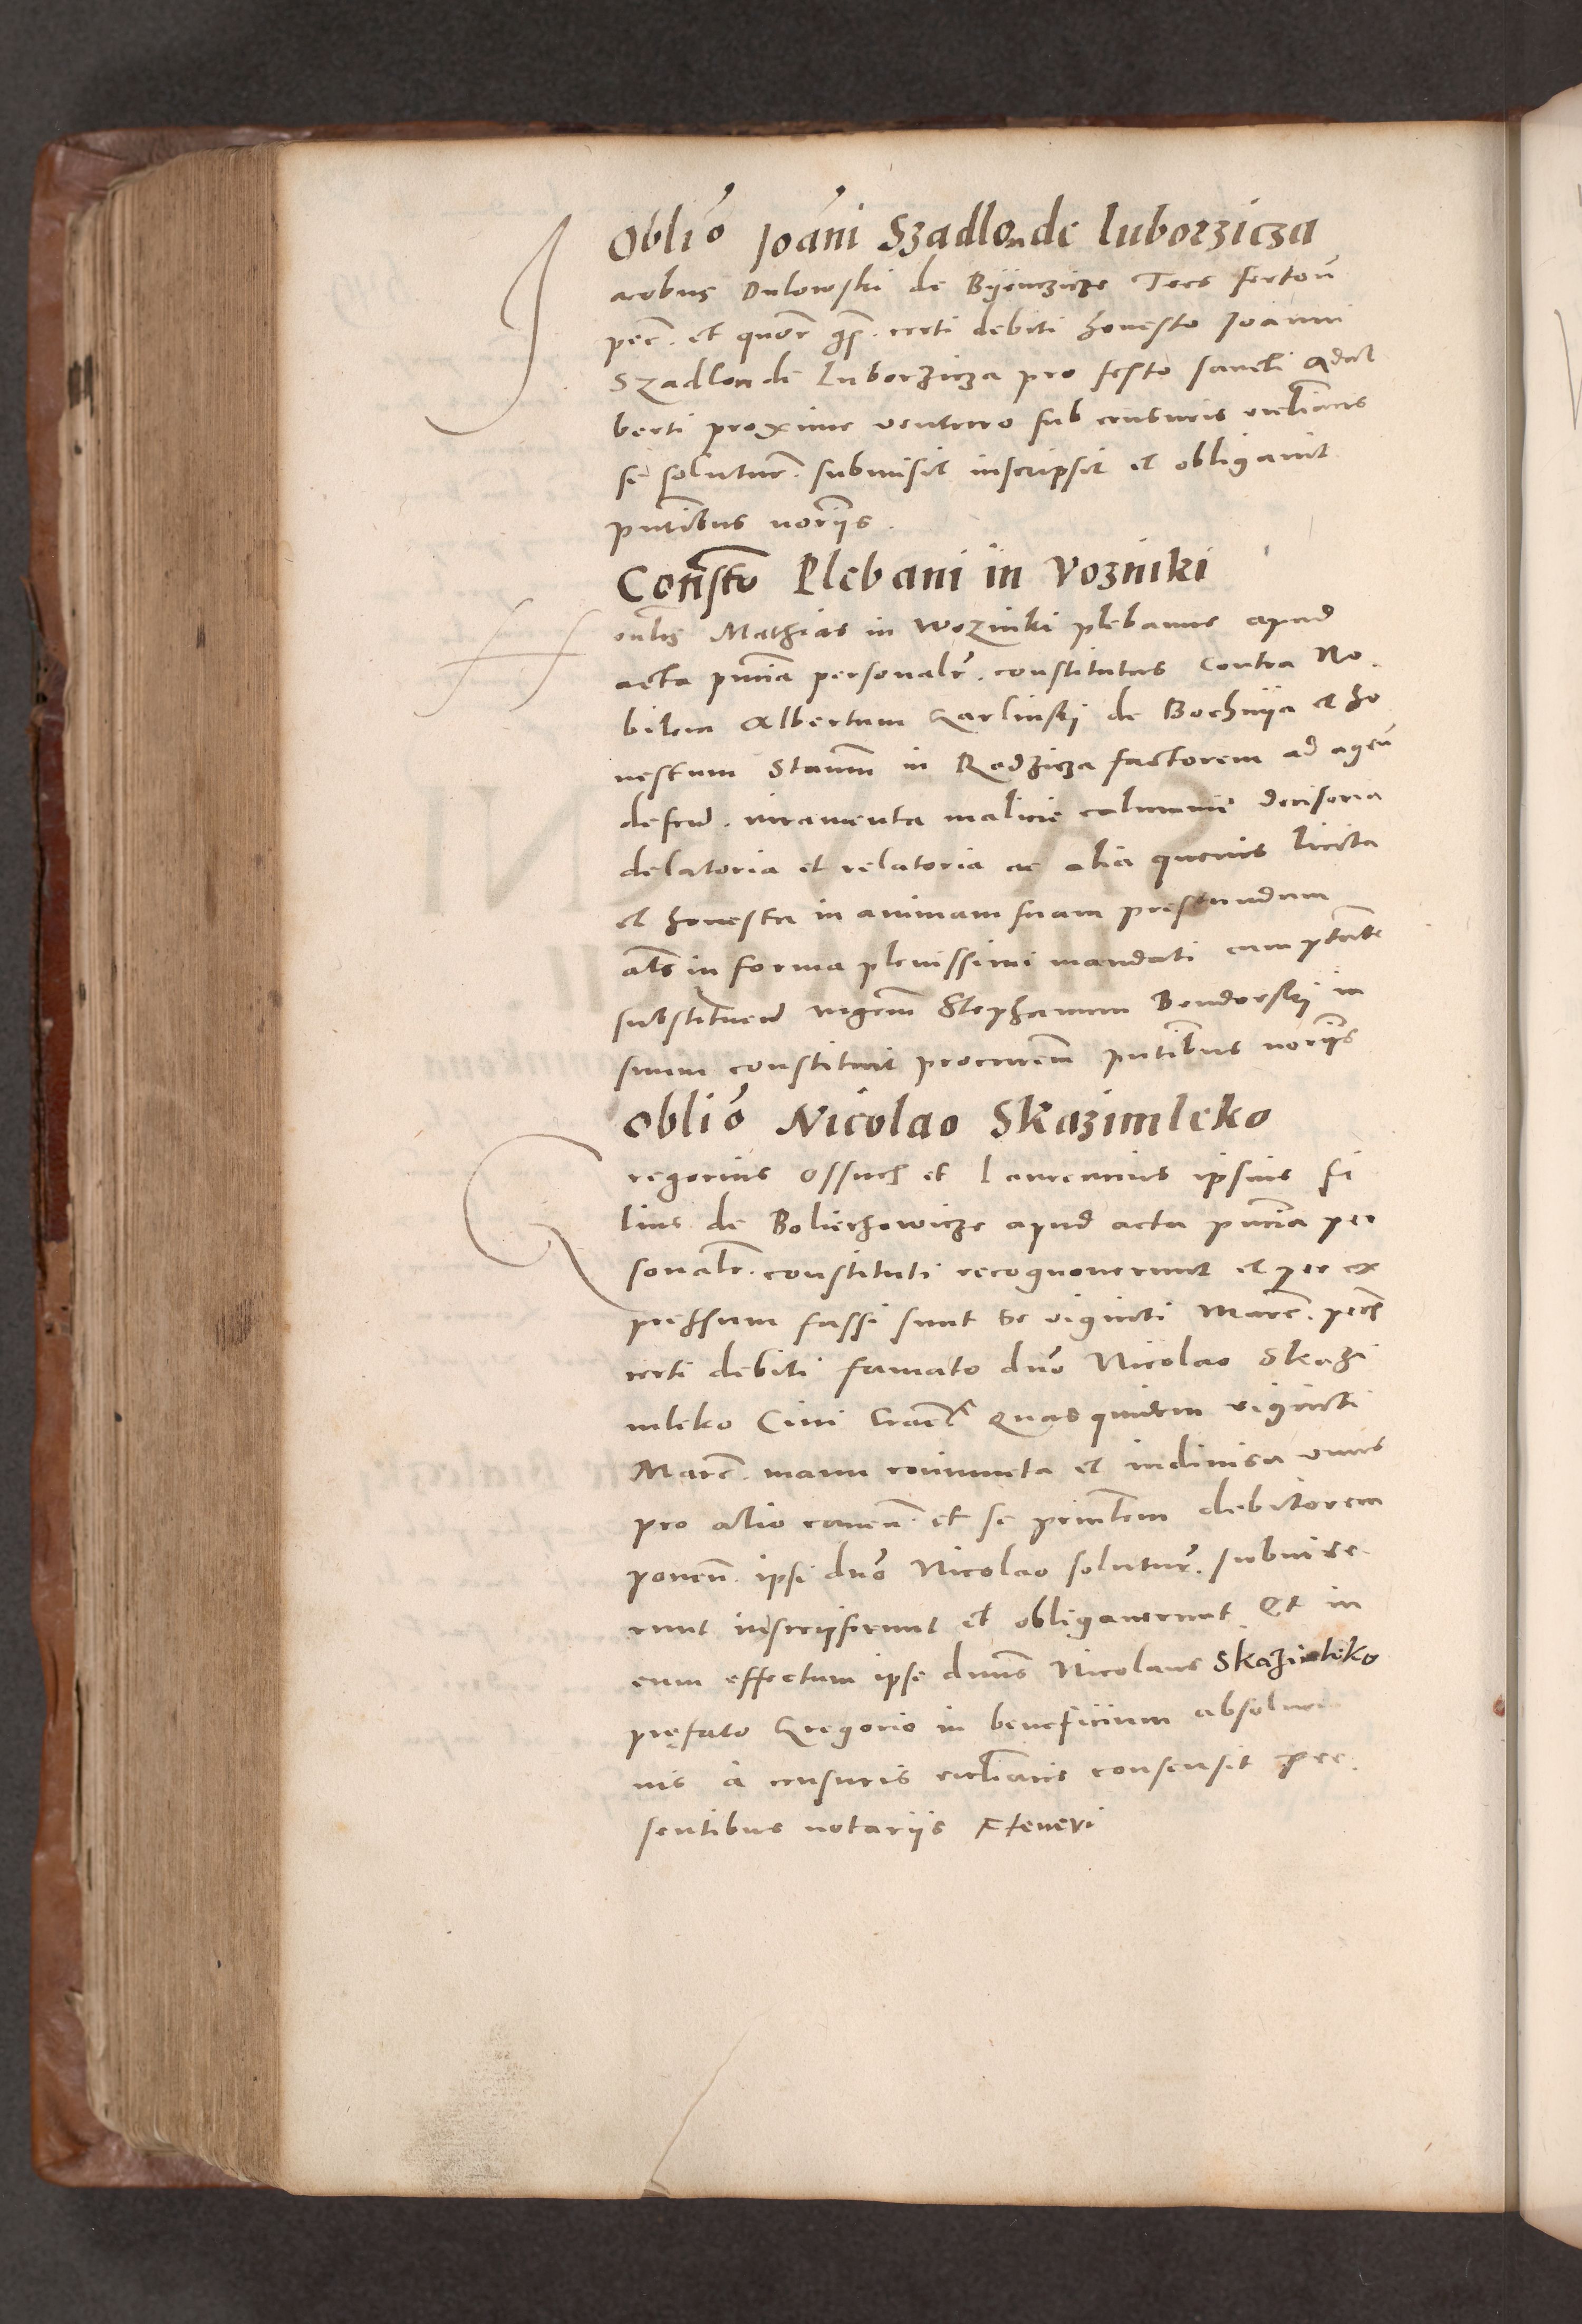 Oblio Joani Szadlon de Luborzicza
Jacobus Dulowski de Byenczicze Tres fertoñ
pec. et quor gs. certi debiti honesto Joanni
Szadlon de Luborzicza pro festo sancti Adal
berti proxime venturo sub censuris ecclīacis
se soluturū. submisit inscripsit et obligavit
pntibus noriis.
Constio Plebani in Vozniki
Honlis Mathias in Wozniki plebanus apud
acta pncia personalr. constitutus contra No
bilem Albertum Karlinskj de Bochnya et ho
nestum Stanm in Radzicza factorem ad agenⁿ
defend. iuramenta malicie calumnie decisoria
delatoria et relatoria ac alia quevis licita
et honesta in animam suam prestandum
als in forma plenissimi mandati cum ptate
substituend ingenm Stephanum Bendorskj in
suum constituit procurem pntibus noriis
Oblio Nicolao Skazimleko
Gregorius Ossuch et Laurencius ipsius fi
lius de Boliechowicze apud acta pncia per
sonalr. constituti recognoverunt et per ex
pressum fassi sunt se viginti Marc. pecs
certi debiti famato dno Nicolao Skazi
mleko Civi Crac. Quasquidem viginti
Marc. manu coniuncta et indivisa unus
pro alio caven. et se principlem debitorem
ponen. ipsi dno Nicolao solutur. submise
runt inscripserunt et obligaverunt Et in
eum effectum ipse dnus Nicolaus Skazimleko
prefato Gregorio in beneficium absolucio
nis a censuris ecclīacis consensit pre
sentibus notariis